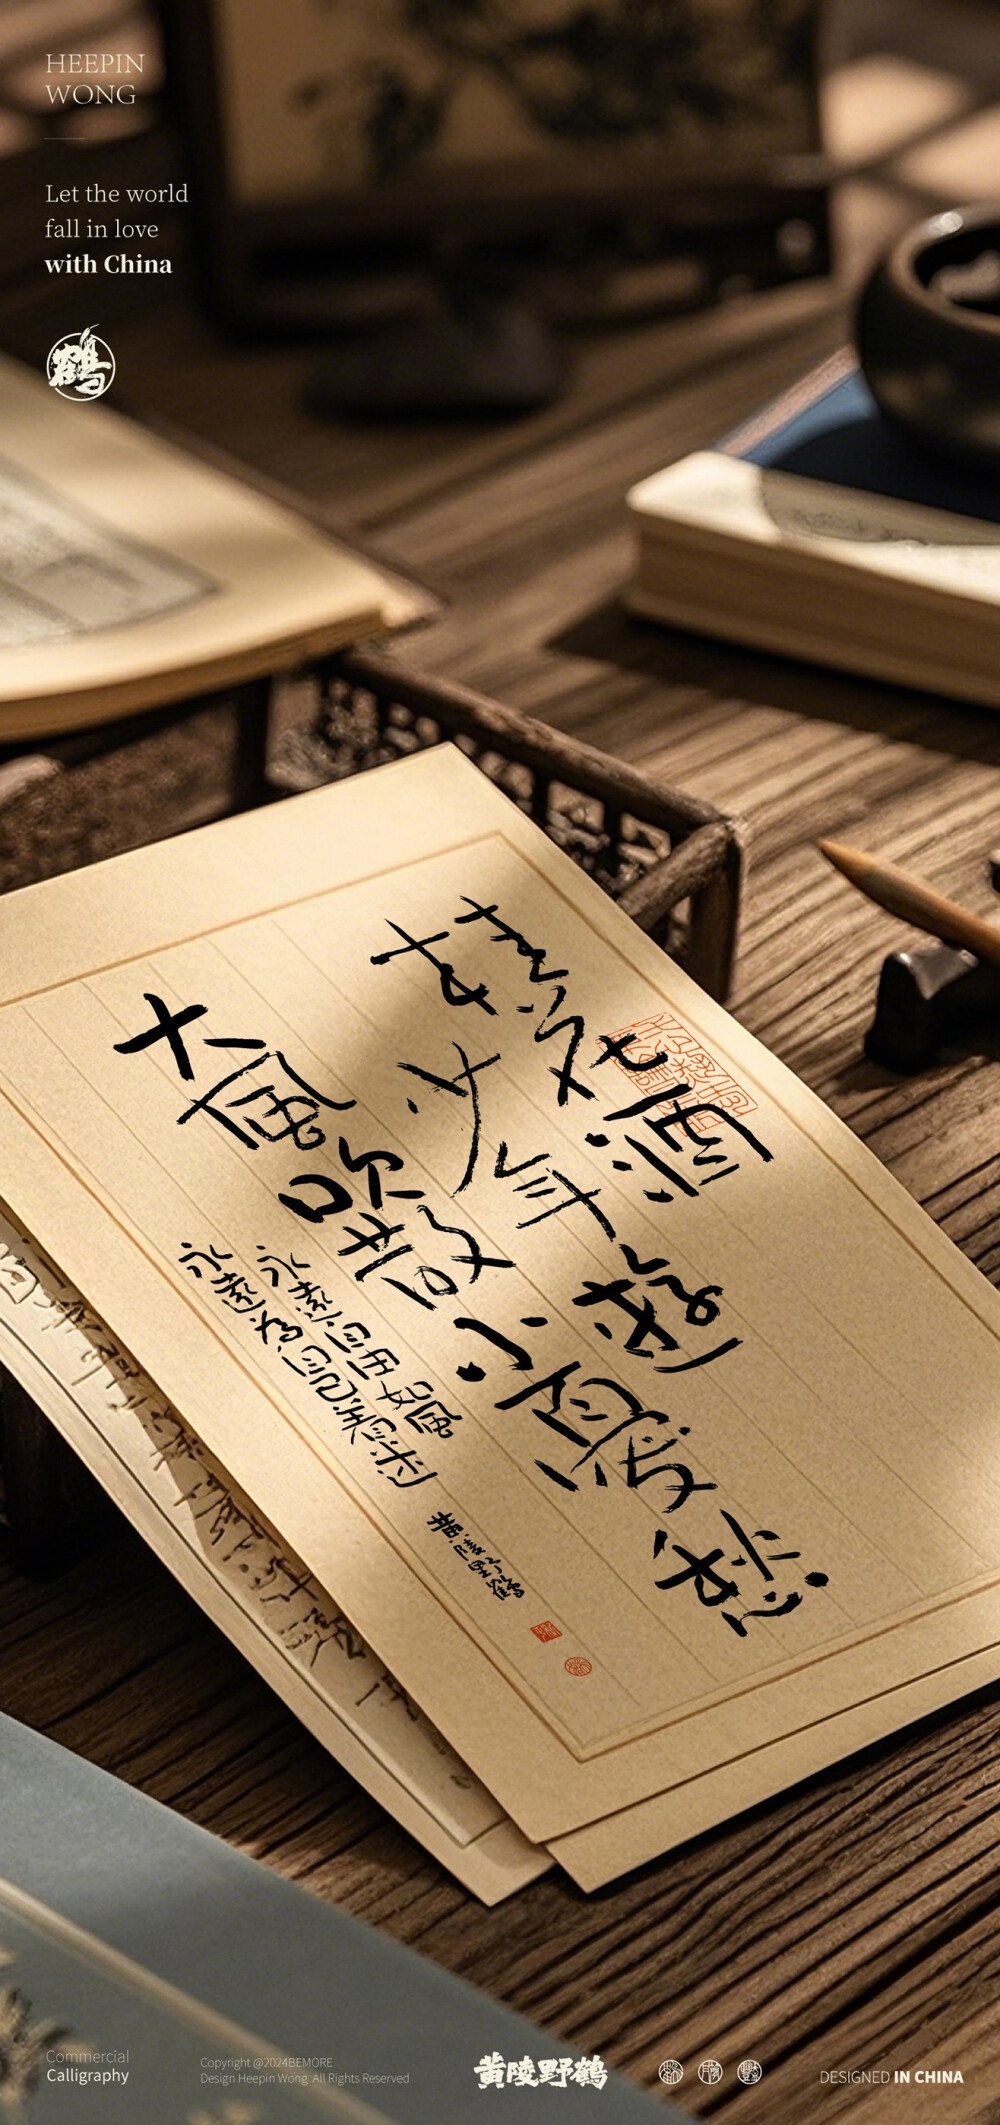 HEEPIN
WONG
Let the world
fall in love
with China
鶴
桂花酒
少年遊
小憂愁
大風吹散
永遠自由如風
永遠為自己着迷
黄陵野鶴
Commercial
Calligraphy
Copyright @2024BEMORE
Design Heepin Wong All Rights Reserved
黄陵野鶴
DESIGNED IN CHINA